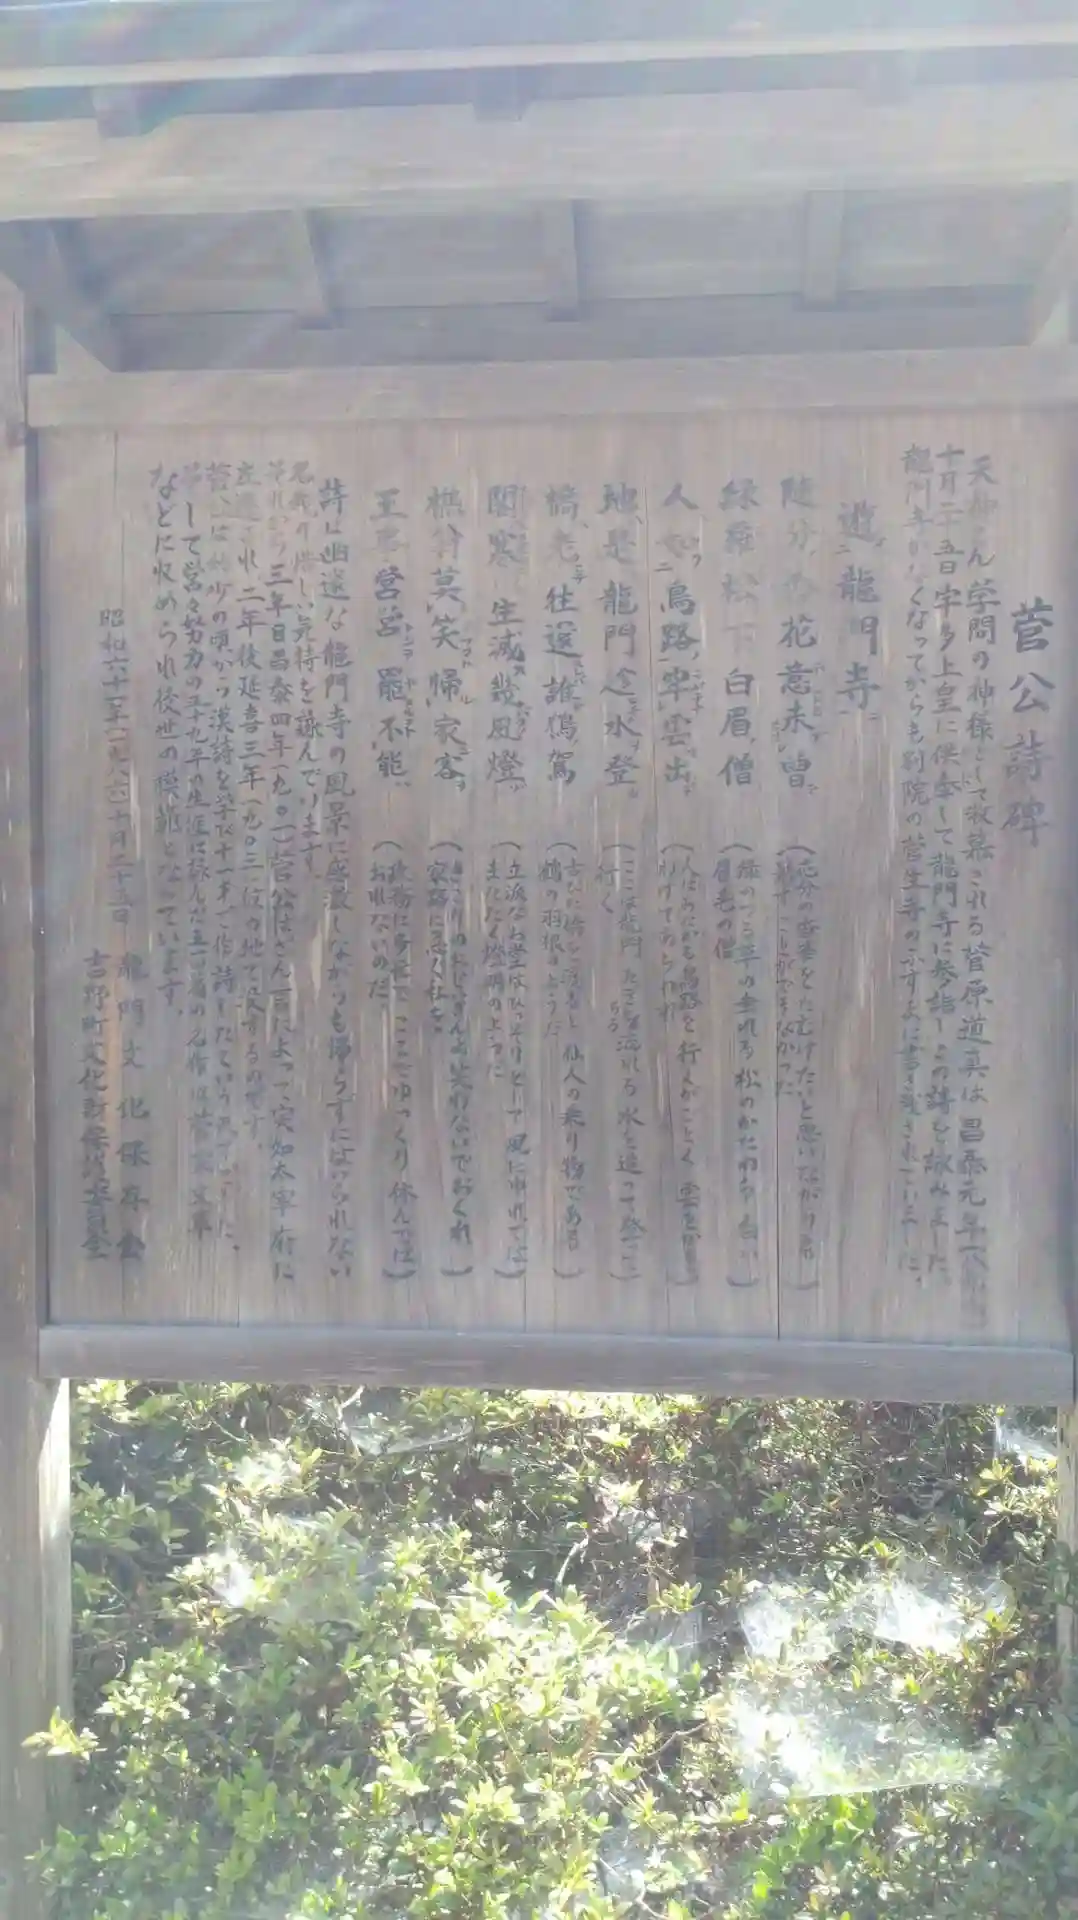 菅公詩碑
天神さん 学問の神様として敬慕される菅原道真は昌泰元年
十月二十五日宇多上皇に供奉して龍門寺に参詣しこの詩を詠みました
龍門寺がなくなってからも別院の菅生寺の
遊龍門寺
随分香花意未曽
緑蘿松下白眉僧
人如鳥路穿雲出
地是龍門趁水登
橋老往還誰鶴駕
閣寒生滅幾風燈
樵翁莫笑帰家客
王事営営罷不能
(応分の香華をたむけたいと思いながら
(緑のつる草の垂れる松のかたわら 白い
眉毛の僧)
(人はあたかも鳥路を行くがごとく 雲を
わけてあらわれ)
(ここは龍門 たきなる流れる水を追って登って
行く)
(古びた橋を 仙人の乗り物である
鶴の羽根のようだ)
(立派なお堂はひっそりとして 風にゆれては
またたく燈明のようだ)
(きこりのおじいさんよ笑わないでおくれ
家路に急ぐ私を)
(政務に多忙で ここでゆっくり休んでは
おれないのだ)
詩は幽遠な龍門寺の風景に感激しながらも帰らずにはいられない
惜しい気持を詠んでいます。
それから三年目昌泰四年(九〇一)菅公はざん言によって突如太宰府に
左遷され 二年後延喜三年(九〇三)
菅公は幼少の頃から漢詩を学び十一才で作詩したという
そして営々努力の五十九年の生涯に詠んだ
などに収められ後世の模範となっています。
昭和六十一年(一九八六)十月二十五日 龍門文化保存会
吉野町文化財保護委員会